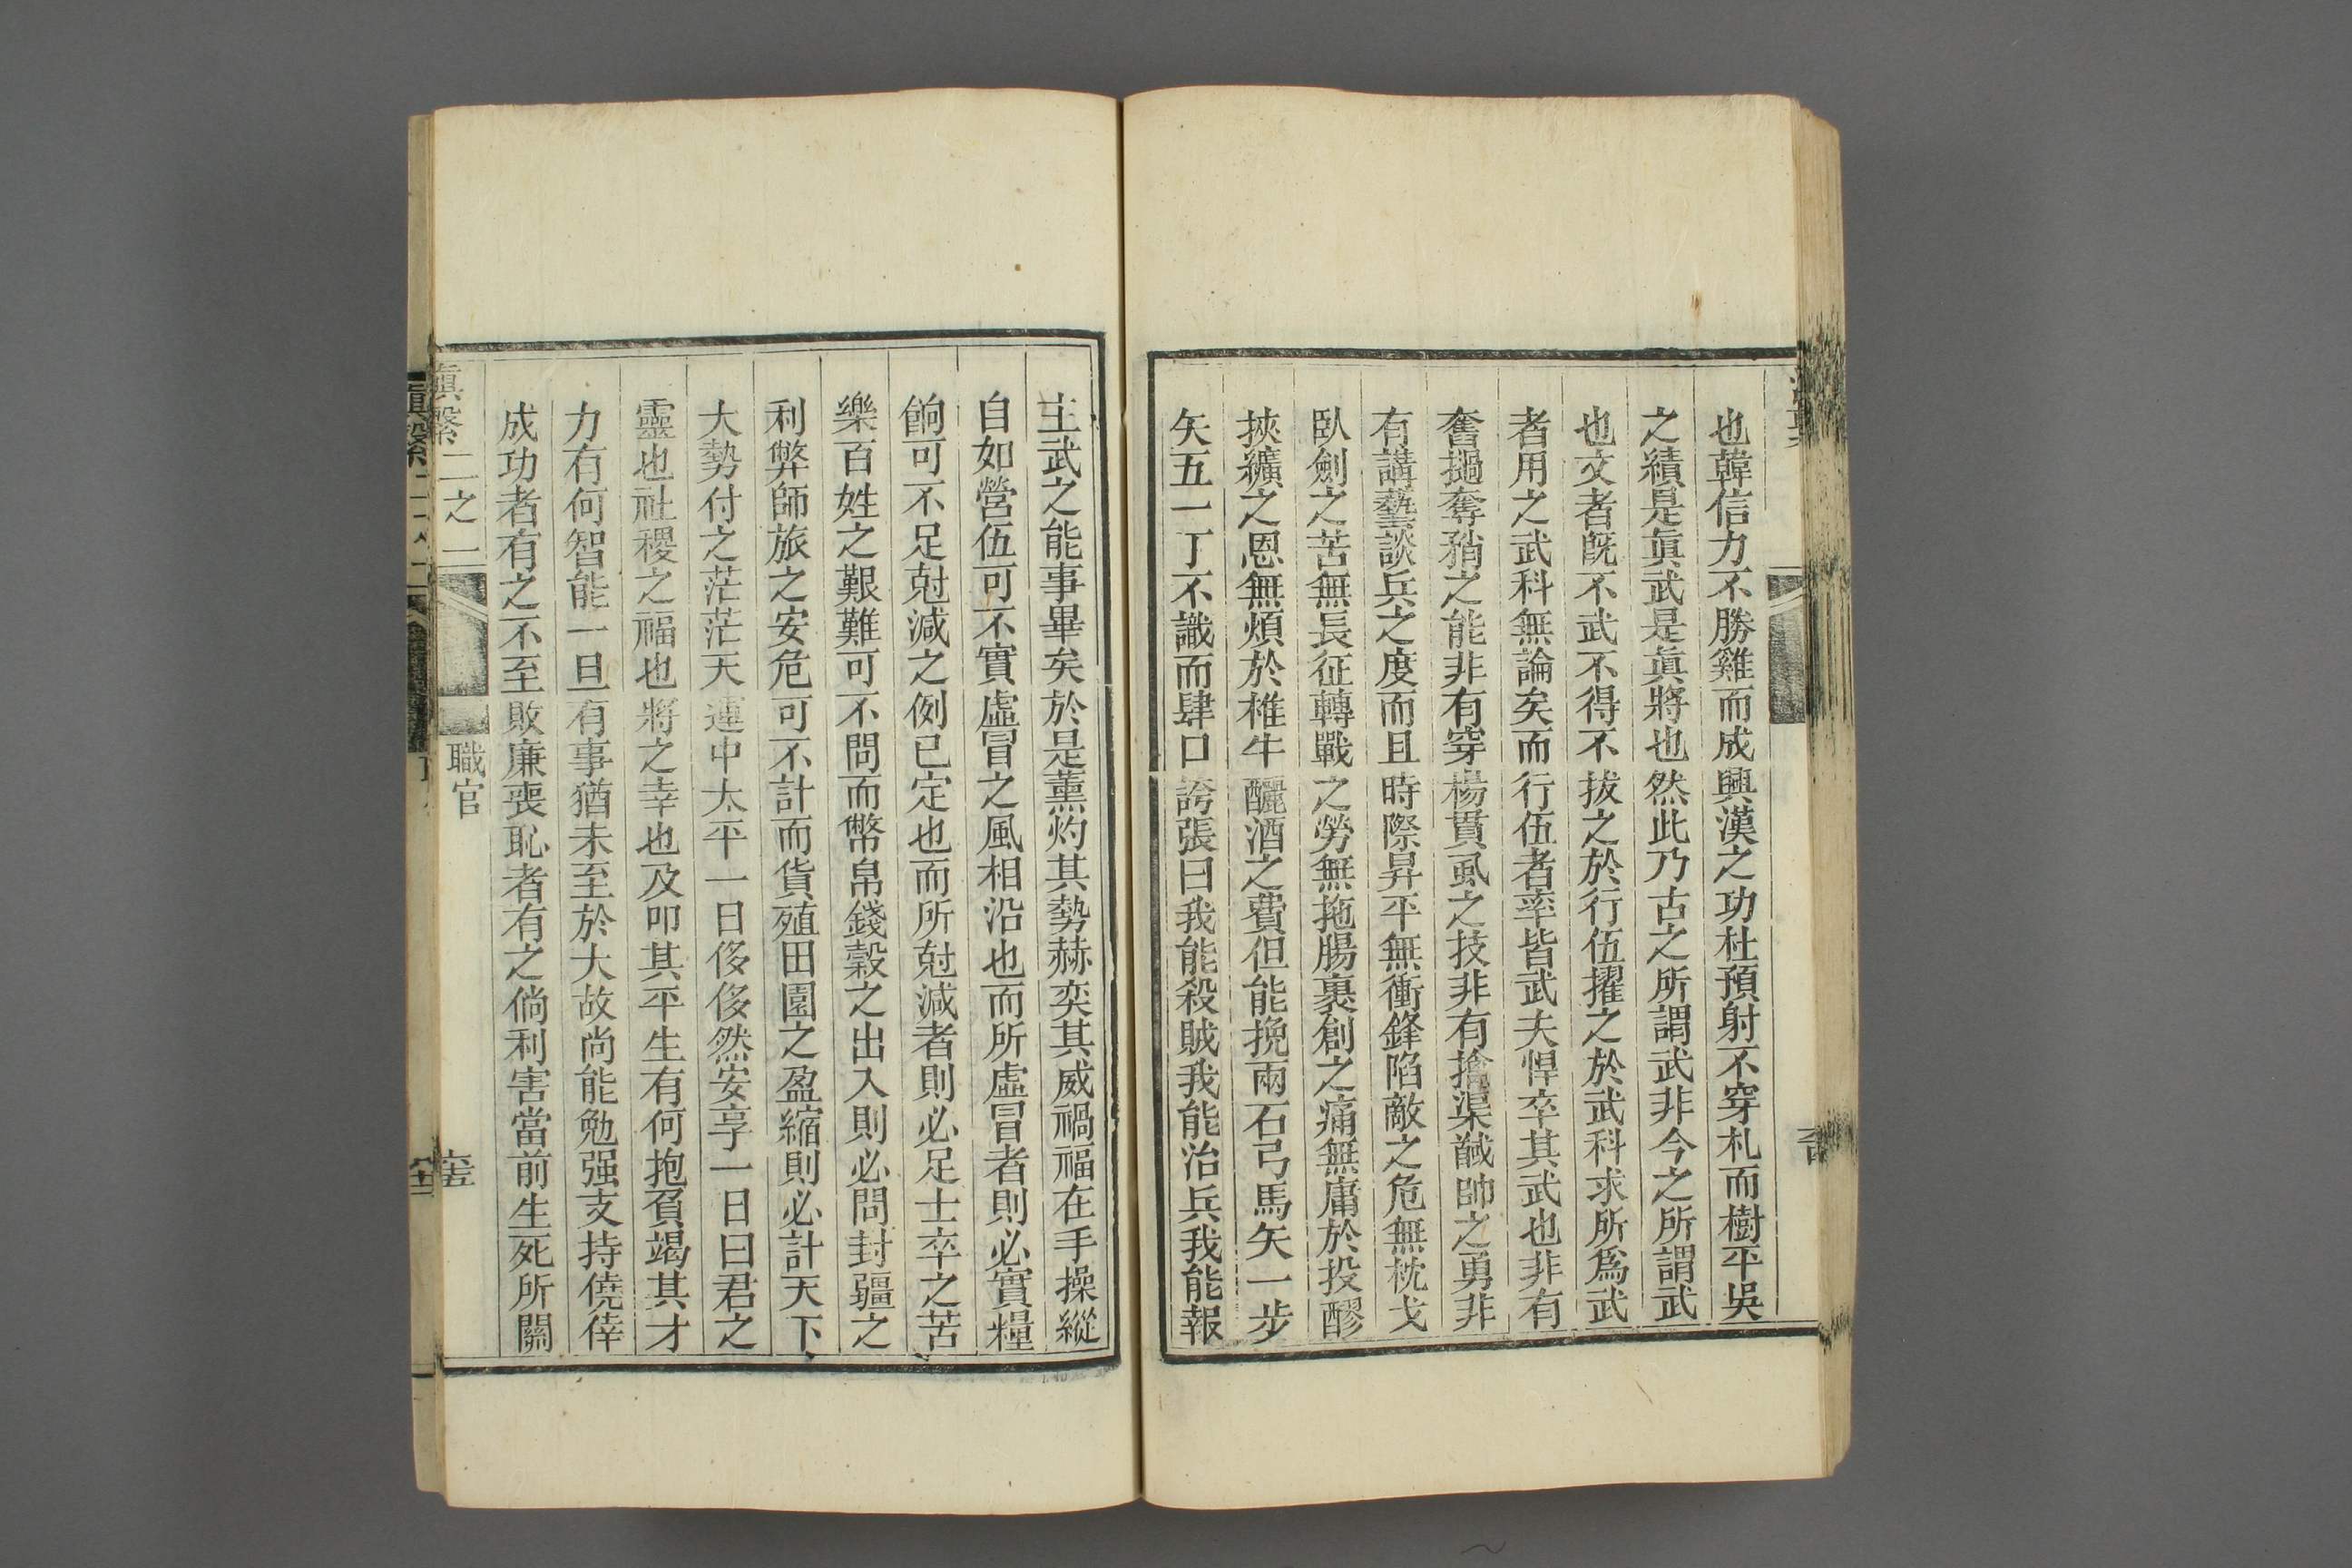 也韓信力不勝雞而成興漢之功杜預射不穿札而樹平吳
之績是眞武是眞將也然此乃古之所謂武非今之所謂武
也文者旣不武不得不拔之於行伍擢之於武科求所爲武
者用之武科無論矣而行伍者率皆武夫悍卒其武也非有
奮撾奪矟之能非有穿楊貫虱之技非有擒渠馘帥之勇非
有講藝談兵之度而且時際昇平無衝鋒陷敵之危無枕戈
臥劍之苦無長征轉戰之勞無拖腸裹創之痛無庸於投醪
挾纊之恩無煩於椎牛釃酒之費但能挽兩石弓馬矢一步
矢五一丁不識而肆口誇張曰我能殺賊我能治兵我能報
主武之能事畢矣於是薰灼其勢赫奕其威禍福在手操縱
自如營伍可不實虛冒之風相沿也而所虛冒者則必實糧
餉可不足尅減之例已定也而所尅減者則必足士卒之苦
樂百姓之艱難可不問而幣帛錢穀之出入則必問封疆之
利弊師旅之安危可不計而貨殖田園之盈縮則必計天下
大勢付之茫茫天運中太平一日侈侈然安享一日曰君之
靈也社稷之福也將之幸也及叩其平生有何抱負竭其才
力有何智能一旦有事猶未至於大故尚能勉强支持僥倖
成功者有之不至敗廉喪恥者有之倘利害當前生死所關
滇繫二之二 職官 六十五